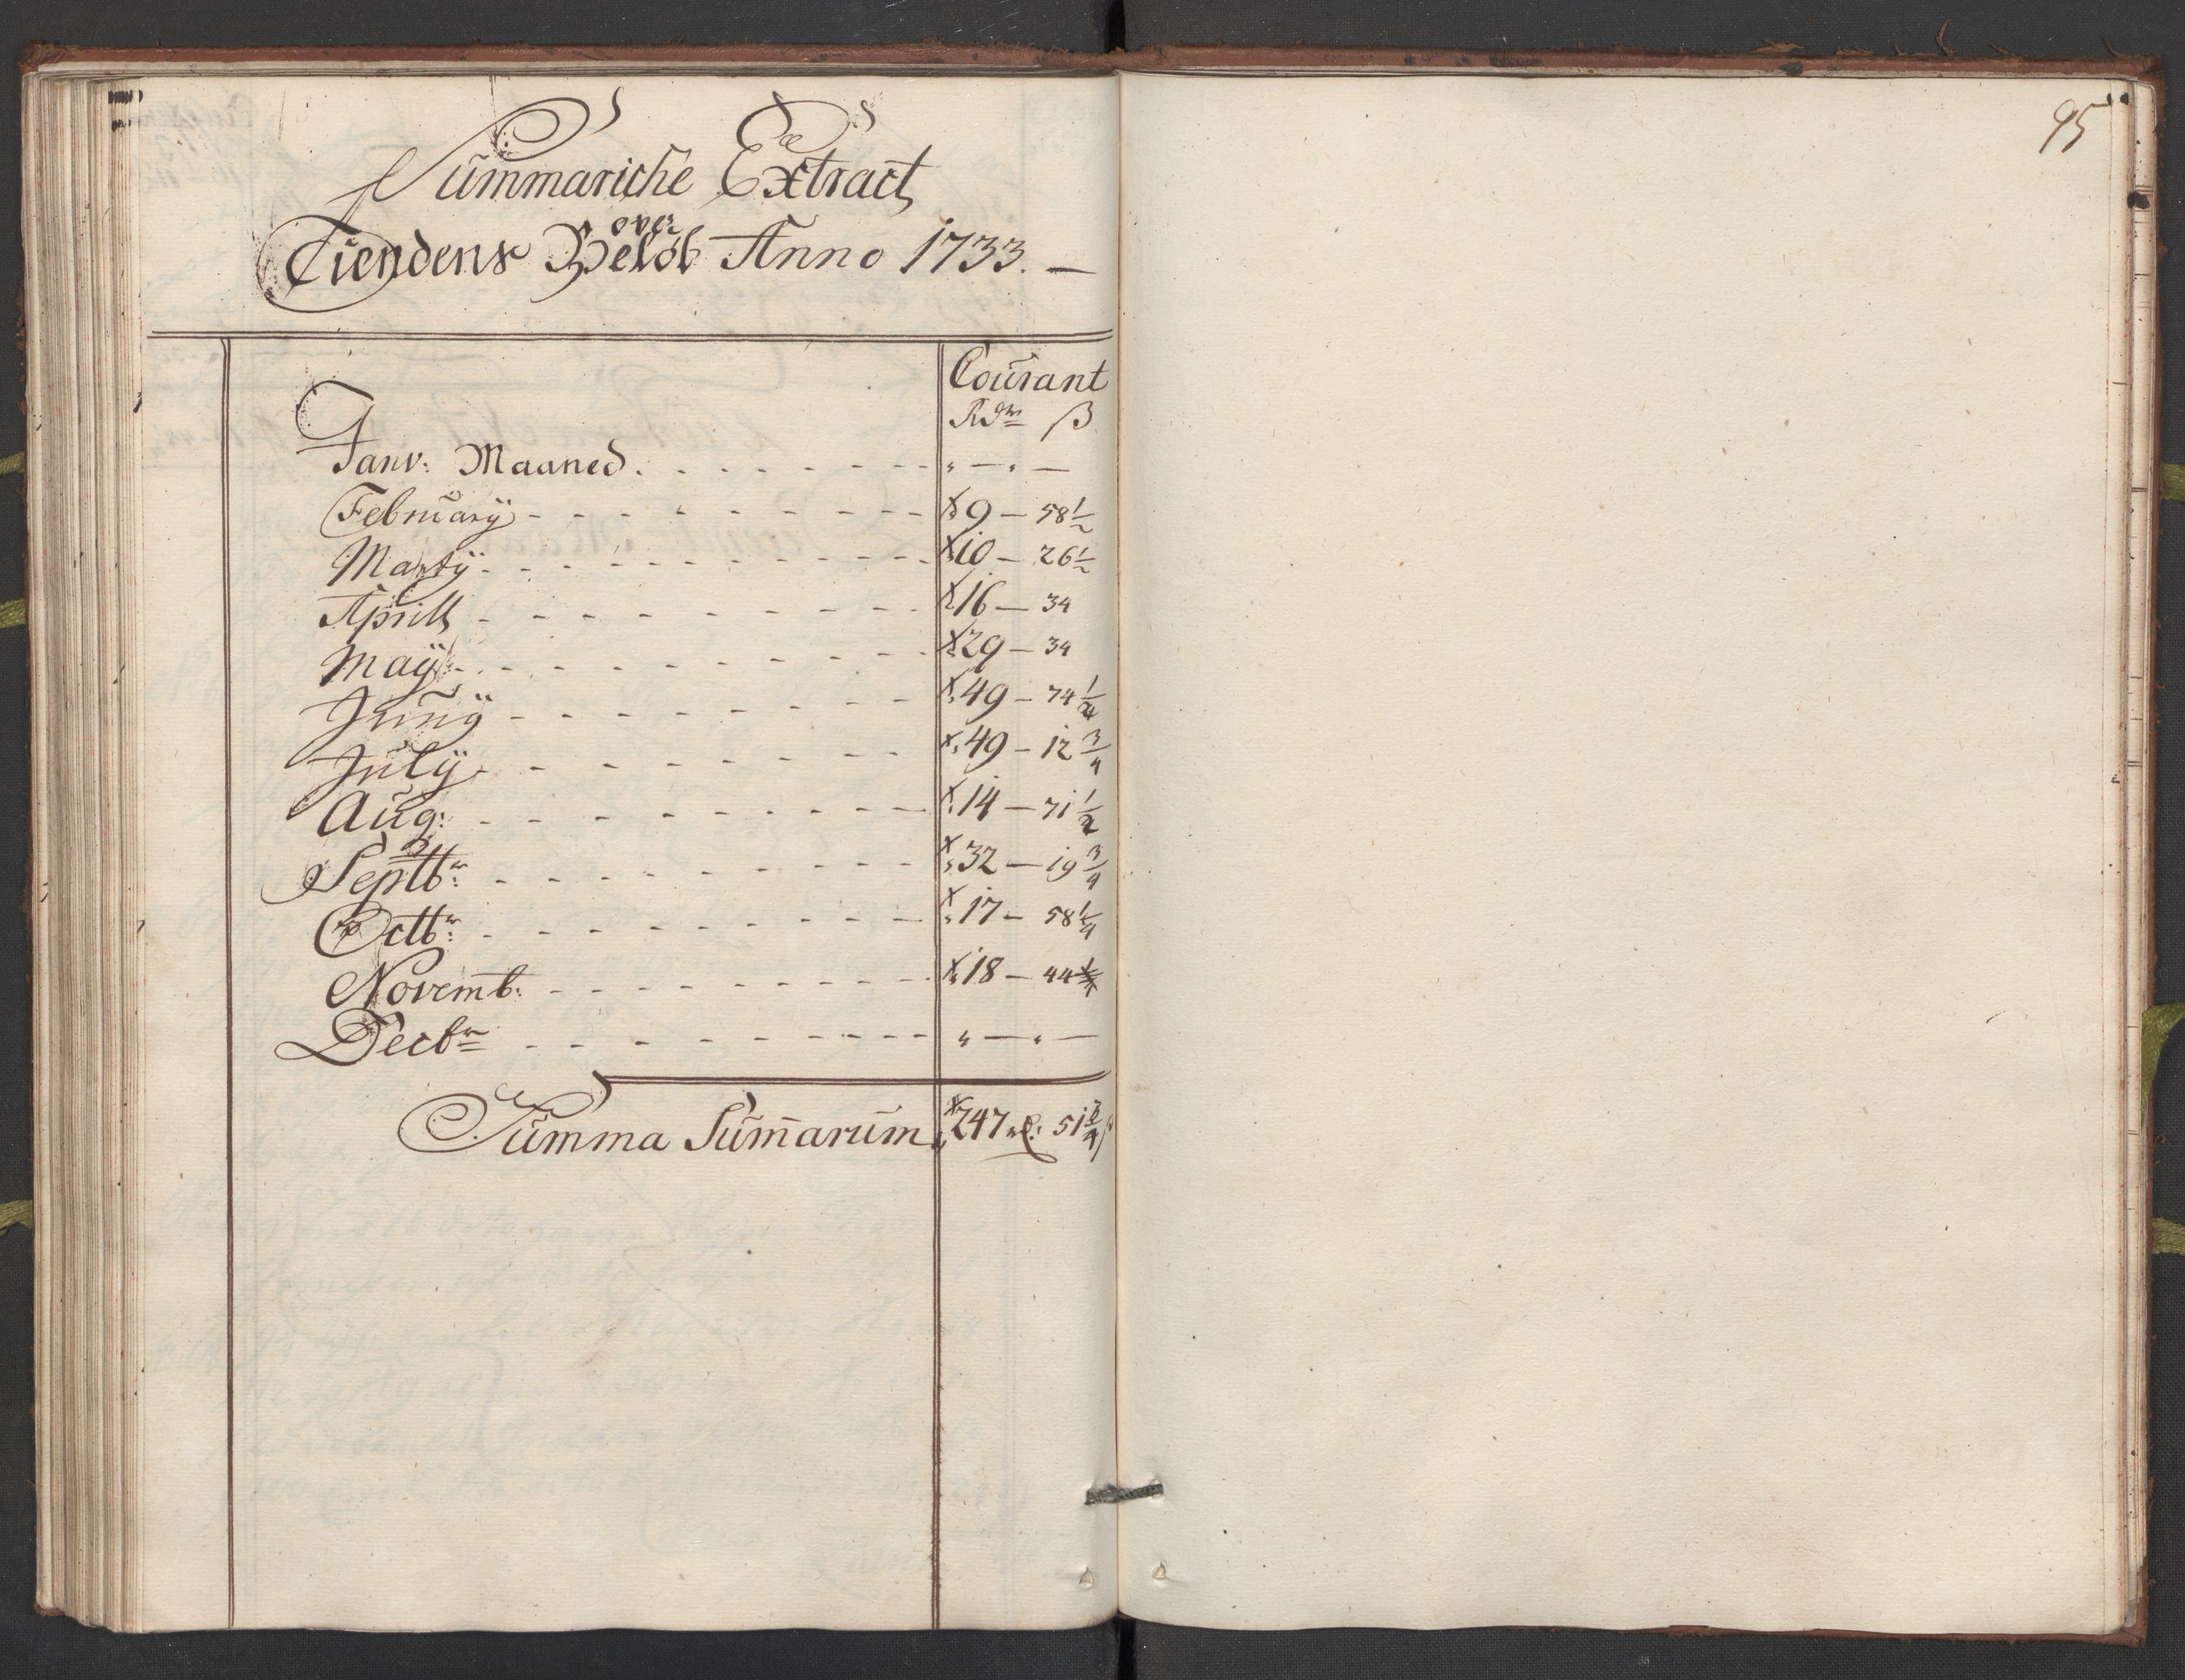 Summariche Extract
over
Tiendens Beløb Anno 1733. —
Courant
Rdr ß
Janv: Maaned. " — " —
February 9 — 58 1/2
Marty 10 — 26 1/2
Aprill 16 — 34
Maÿ 29 — 34
Junÿ 49 — 74 1/4
Julÿ 49 — 12 3/4
Aug: 14 — 71 1/2
Septbr: 32 — 19 3/4
Octbr: 17 — 58 1/4
Novemb: 18 — 44
Decbr " — " —
Summa Sum̄arum 247 rd: 51 3/4 ß
95